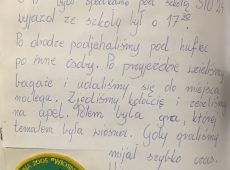 było spotkanie pod szkołą
wyjazd ze szkoły był o 17
Po drodze podjechaliśmy pod hufiec
po inne osoby. Po przyjeździe wzieliśmy
bagaże i udaliśmy się do miejsca
noclegu. Zjedliśmy kolację i
na apel. Potem była gra, której
tematem była wiosna. Gdy graliśmy
mijał szybko czas.